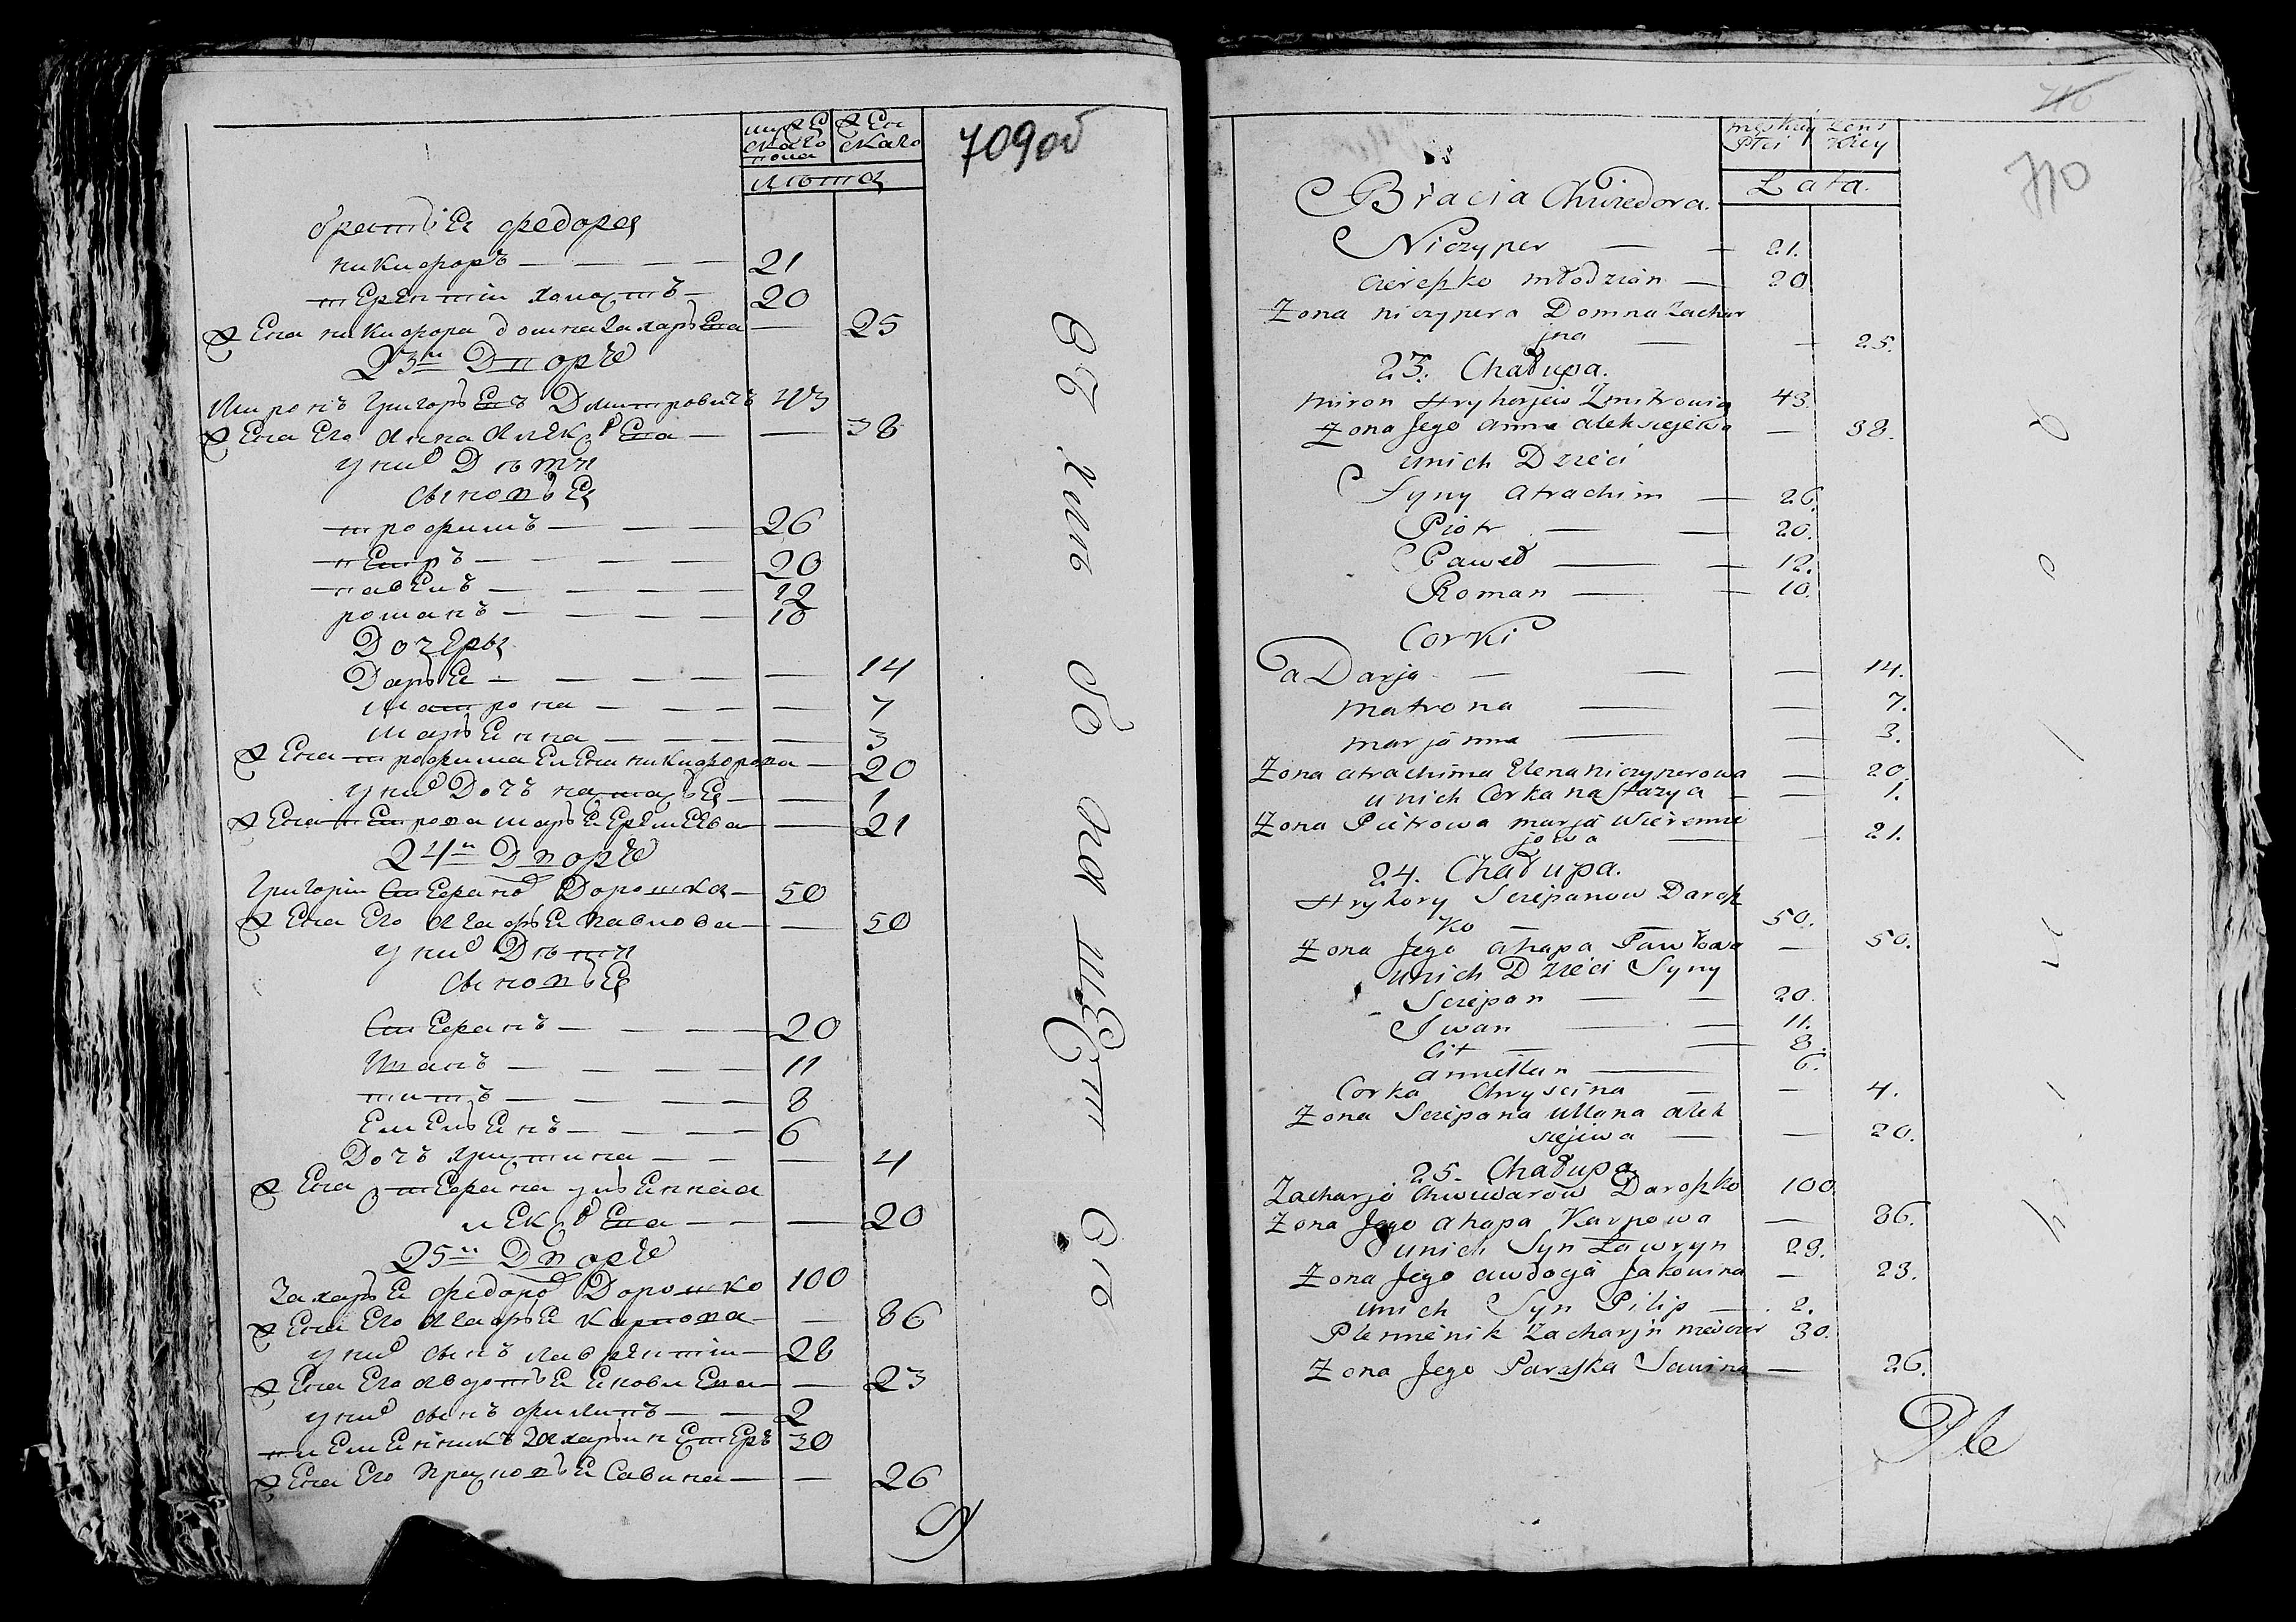 709об
мужескаго пола женскаго
лѣта
братья федора
никифоръ — 21
терентiй холостъ — 20
жена никифора домна захарьева — 25
23й Дворъ
Миронъ Григорьевъ Дмитровичъ 43
жена Его Анна Алексѣева — 38
у них Дѣти
сыновья
трофимъ — 26
петръ — 20
павелъ — 12
романъ — 10
Дочери
Дарья — 14
матрона — 7
марьянна — 3
жена трофима Елена никифорова — 20
у них Дочь настасья — 1
жена петрова марья Еремеева — 21
24й Дворъ
Григорiй Степанов Дорошко — 50
жена Его Агафья павлова — 50
у них Дѣти
сыновья
Степанъ — 20
Иванъ — 11
титъ — 8
Емельянъ — 6
Дочь христина — 4
жена степана ульянна а
лексѣева — 20
25й Дворъ
Захарья федоров Дорошко 100
жена Его Агафья карпова — 86
у них сынъ лаврентiй — 28
жена Его авдотья яковлева — 23
у них сынъ филипъ — 2
племянникъ захарьи нестеръ 30
жена Его прасковья савина — 26
710
710
męskiey Płci żenskiey
Lata.
Bracia Chwiedora.
Niczyper — 21.
ciereszko młodzian — 20
Zona niczypera Domna Zachar
jna — 25.
23. Chałupa.
Miron Hryhorjew Zmitrowicz 43.
Zona Jego anna aleksiejewa — 38.
unich Dzieci
Syny atrachim — 26.
Piotr — 20.
Paweł — 12.
Roman — 10.
Corki
Darja — 14.
matrona — 7.
marjanna — 3.
Zona atrachima Elena niczyperowa — 20.
unich Corka nastazya — 1.
Zona Piotrowa marja wieremie
jowa — 21.
24. Chałupa.
Hryhory Sciepanow Darosz
ko — 50.
Zona Jego ahapa Pawłowa — 50.
unich Dzieci Syny
Sciepan — 20.
Iwan — 11.
Cit — 8.
amiellan — 6.
Corka Chryscina — 4.
Zona Sciepana Ullana alek
siejewa — 20.
25. Chałupa
Zacharja Chwiedarow Daroszko 100
Zona Jego ahapa Karpowa — 86.
unich Syn Ławryn 28.
Zona Jego awdocja Jakowina — 23.
unich Syn Pilip — 2.
Plemienik Zacharji niescier 30.
Zona Jego Paraska Sawina — 26.